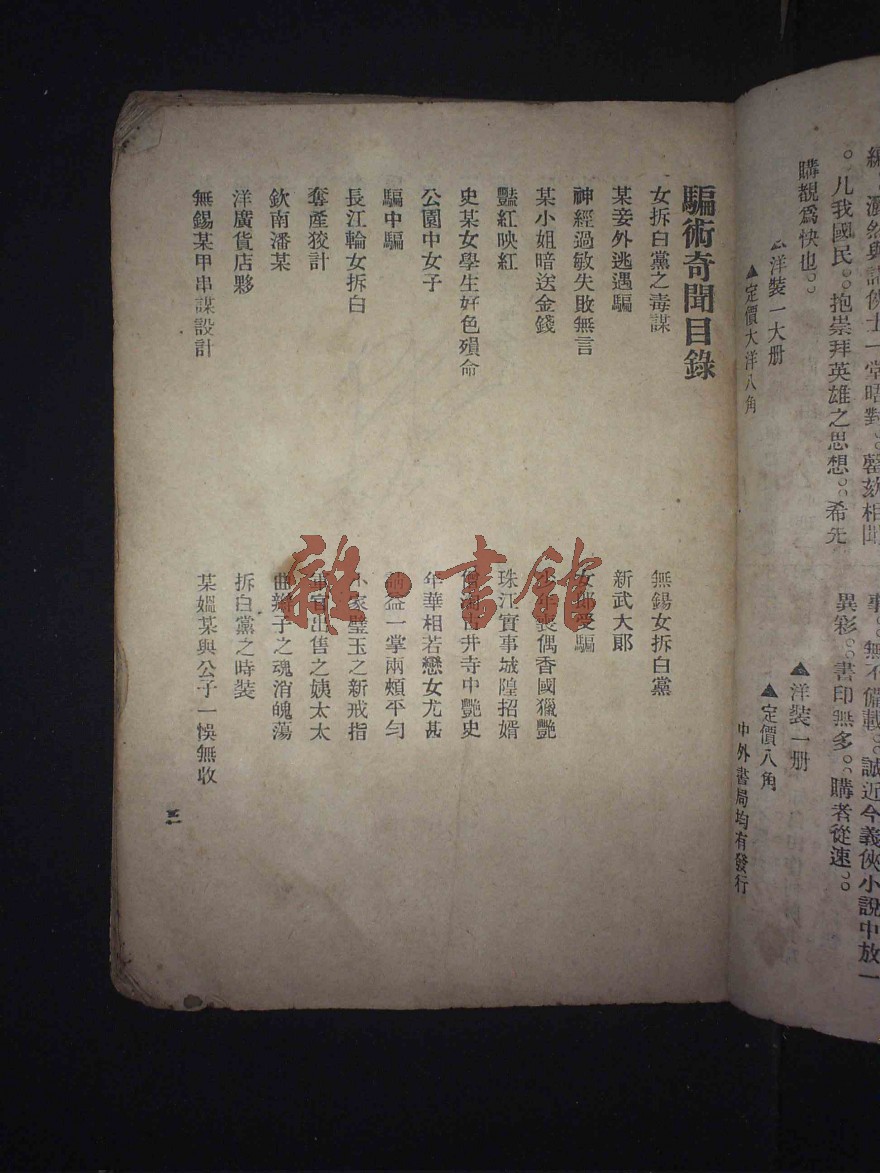 編
。凡我國民。。抱崇拜英雄之思想。。希先
購覩爲快也。。
▲洋裝一大册
▲定價大洋八角
事。。無不備載。。誠近今義俠小說中放一
異彩。。書印無多。。購者從速。。
▲洋裝一册
▲定價八角
中外書局均有發行
騙術奇聞目錄
女拆白黨之毒謀
無錫女拆白黨
某妾外逃遇騙
新武大郎
神經過敏失敗無言
女郎受騙
某小姐暗送金錢
喪偶香國獵艷
豔紅映紅
珠江實事城隍招婿
史某女學生好色殞命
古井寺中艷史
公園中女子
年華相若戀女尤甚
騙中騙
益一掌兩頰平勻
長江輪女拆白
小家璧玉之新戒指
奪產狡計
軍官出售之姨太太
欽南潘某
曲辮子之魂消魄蕩
洋廣貨店夥
拆白黨之時裝
無錫某甲串謀設計
某嫗某與公子一悞無收
雜·書館